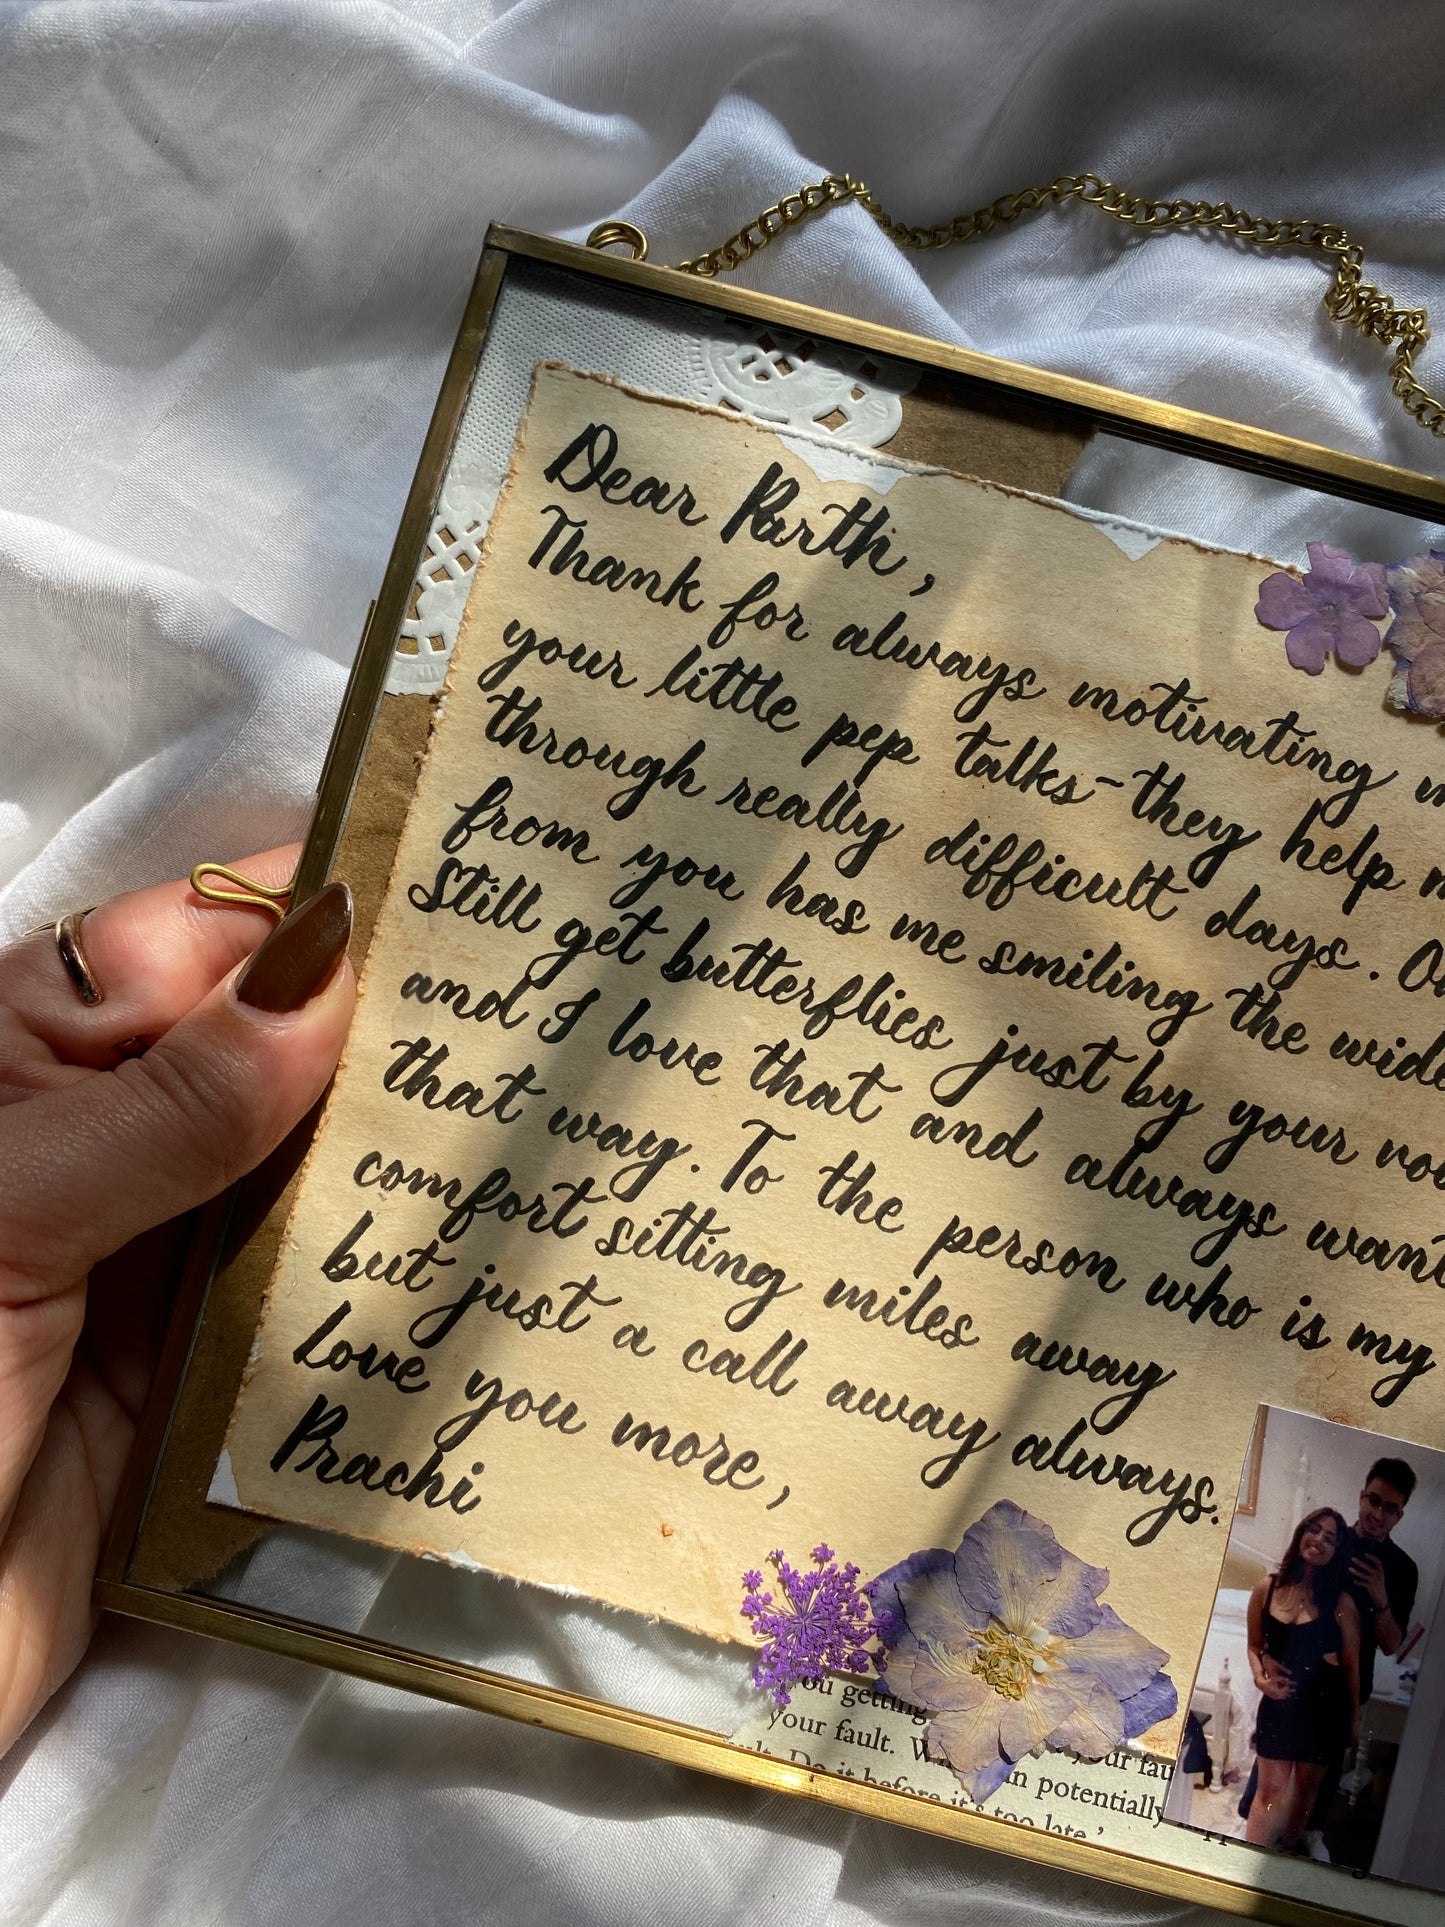 Dear Parth,
Thank for always motivating
your little pep talks - they help
through really difficult days.
from you has me smiling the
Still get butterflies just by your
and I love that and always want
that way. To the person who is my
comfort sitting miles away
but just a call away always.
Love you more,
Prachi
you getting
your fault. your
Do it before it's too late.'
in potentially